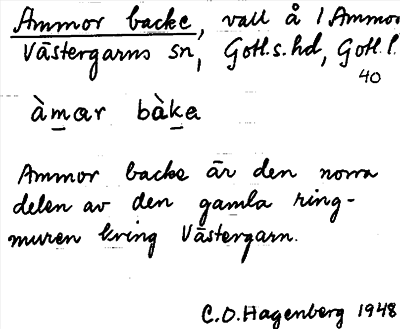 Ammor backe, vall å / Ammor
Västergarns sn, Gotl.s.hd, Gotl.l.
40
àmar bàke
Ammor backe är den norra
delen av den gamla ring-
muren kring Västergarn.
C.O.Hagenberg 1948